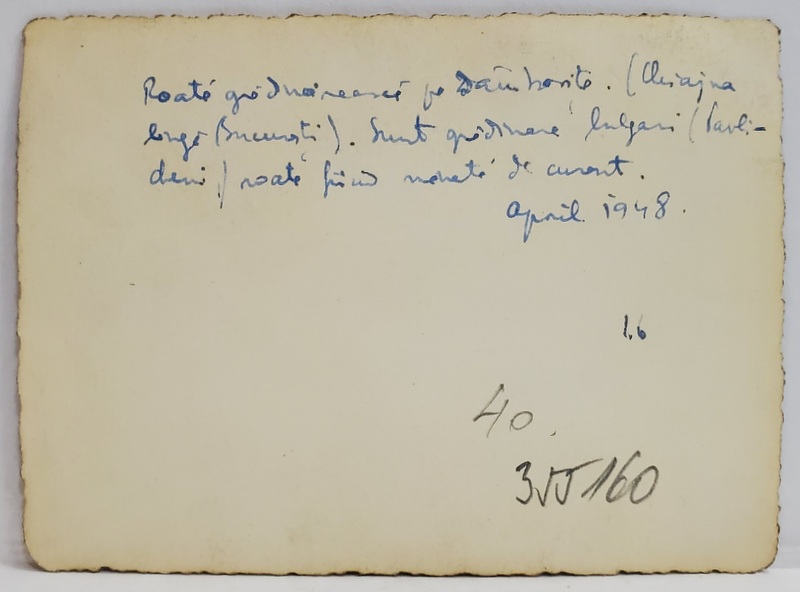 Roată grădinărească pe Dâmbovița. (Chiajna
lângă București). Sunt grădinari bulgari (Pavli-
cheni) roata fiind mânată de curent.
April 1948.
1.6
40.
355160